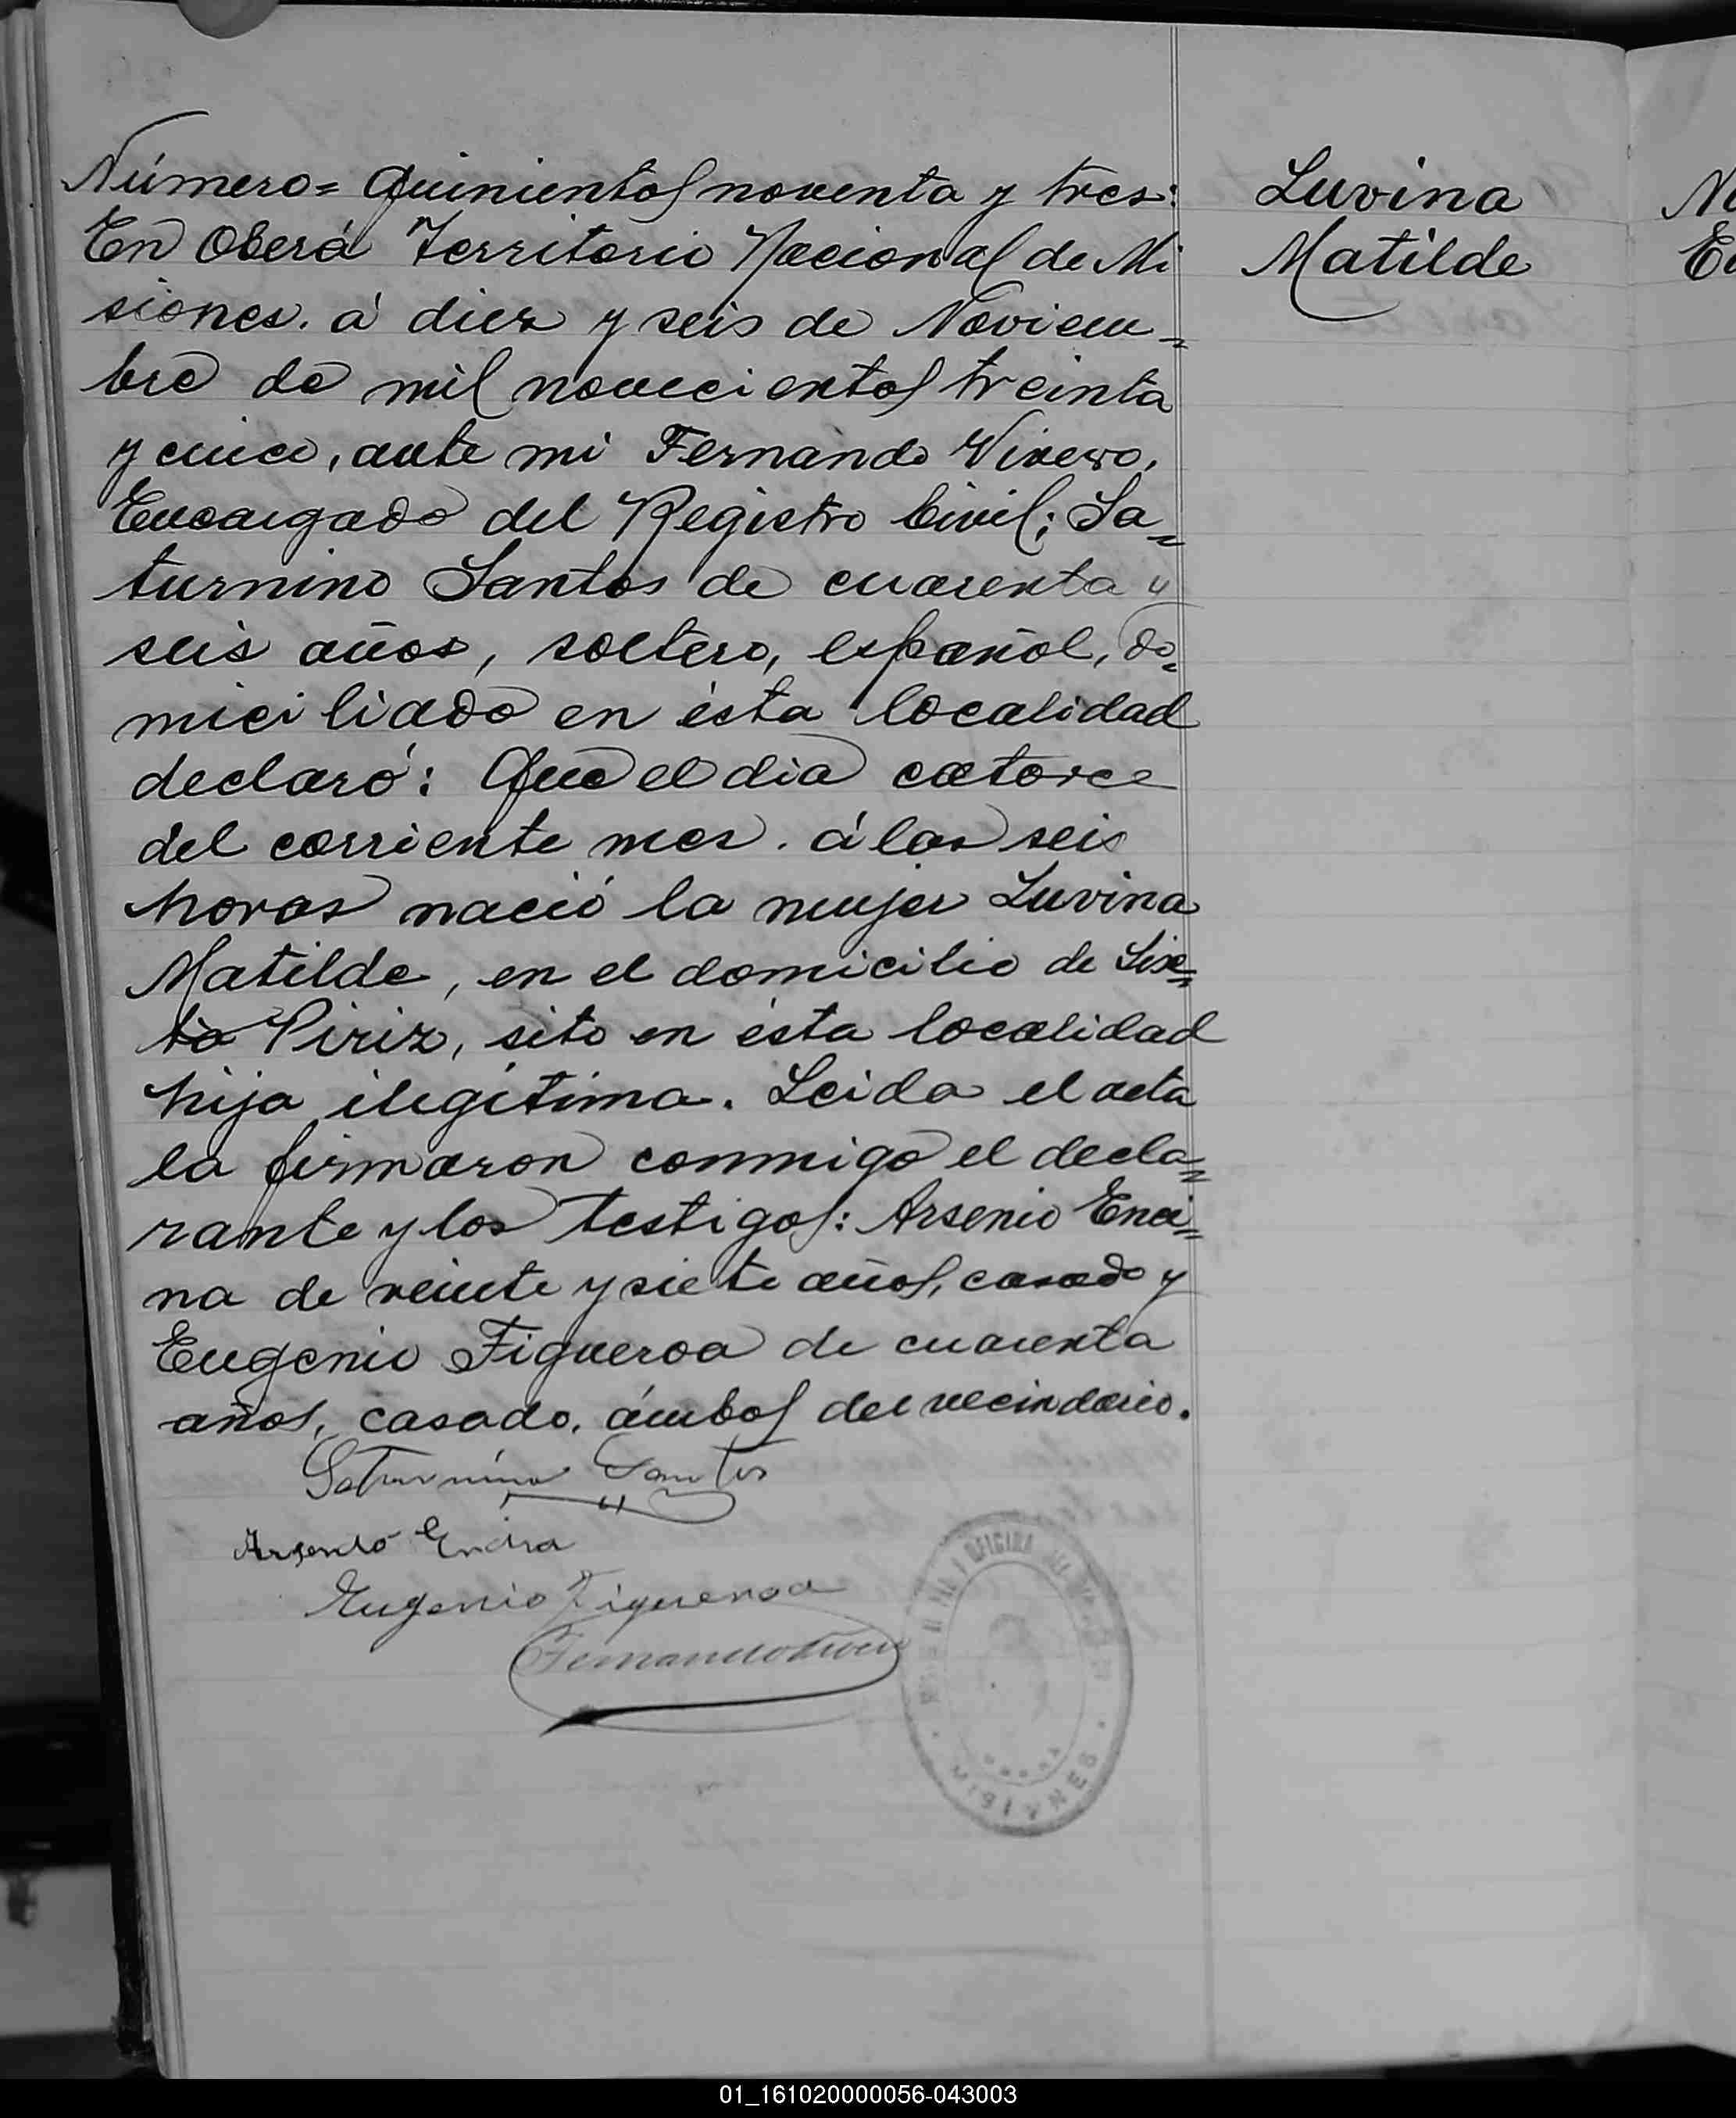 Número= Quinientos noventa y tres:
En Oberá Territorio Nacional de Mi
siones. á diez y seis de Noviem=
bre de mil novecientos treinta
y cinco, ante mi Fernando Vivero,
Encargado del Registro Civil; Sa=
turnino Santos de cuarenta y
seis años, soltero, español, do=
miciliado en ésta localidad
declaró: Que el dia catorce
del corriente mes. á las seis
horas nació la mujer Luvina
Matilde, en el domicilio de Six=
to Piriz, sito en ésta localidad
hija ilegítima. Leida el acta
la firmaron conmigo el decla=
rante y los testigos: Arsenio Enci=
na de veinte y siete años, casado y
Eugenio Figueroa de cuarenta
años, casado, ámbos del vecindario.
Saturnino Santos
Arsenio Encina
Eugenio Figueroa
Fernando Vivero
OFICINA
MISIONES
Luvina
Matilde
N
E
01_161020000056-043003